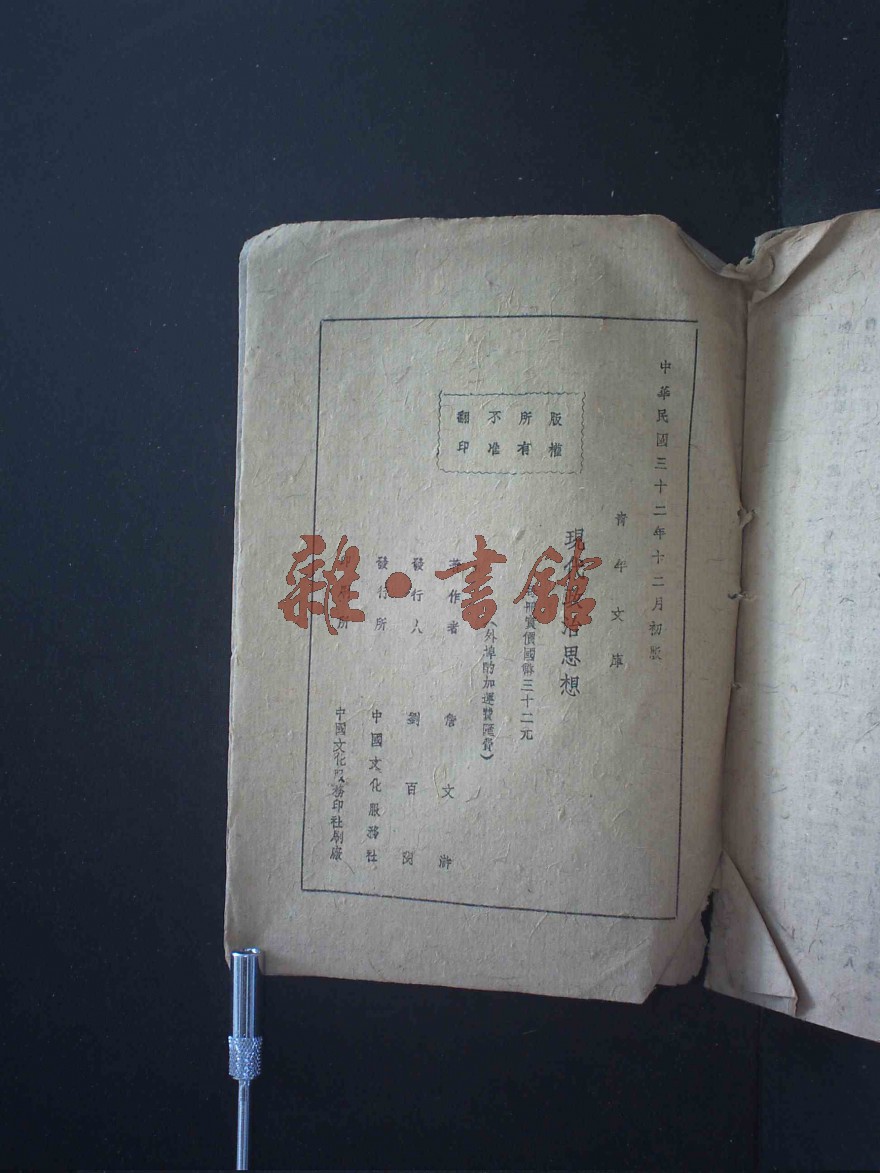 中華民國三十二年十二月初版
青年文庫
現代政治思想
實價國幣三十二元
(外埠酌加運費匯費)
版權
所有
不准
翻印
著作者 詹文滸
發行人 劉百閔
發行所 中國文化服務社
印刷所 中國文化服務印社刷廠
雜·書館